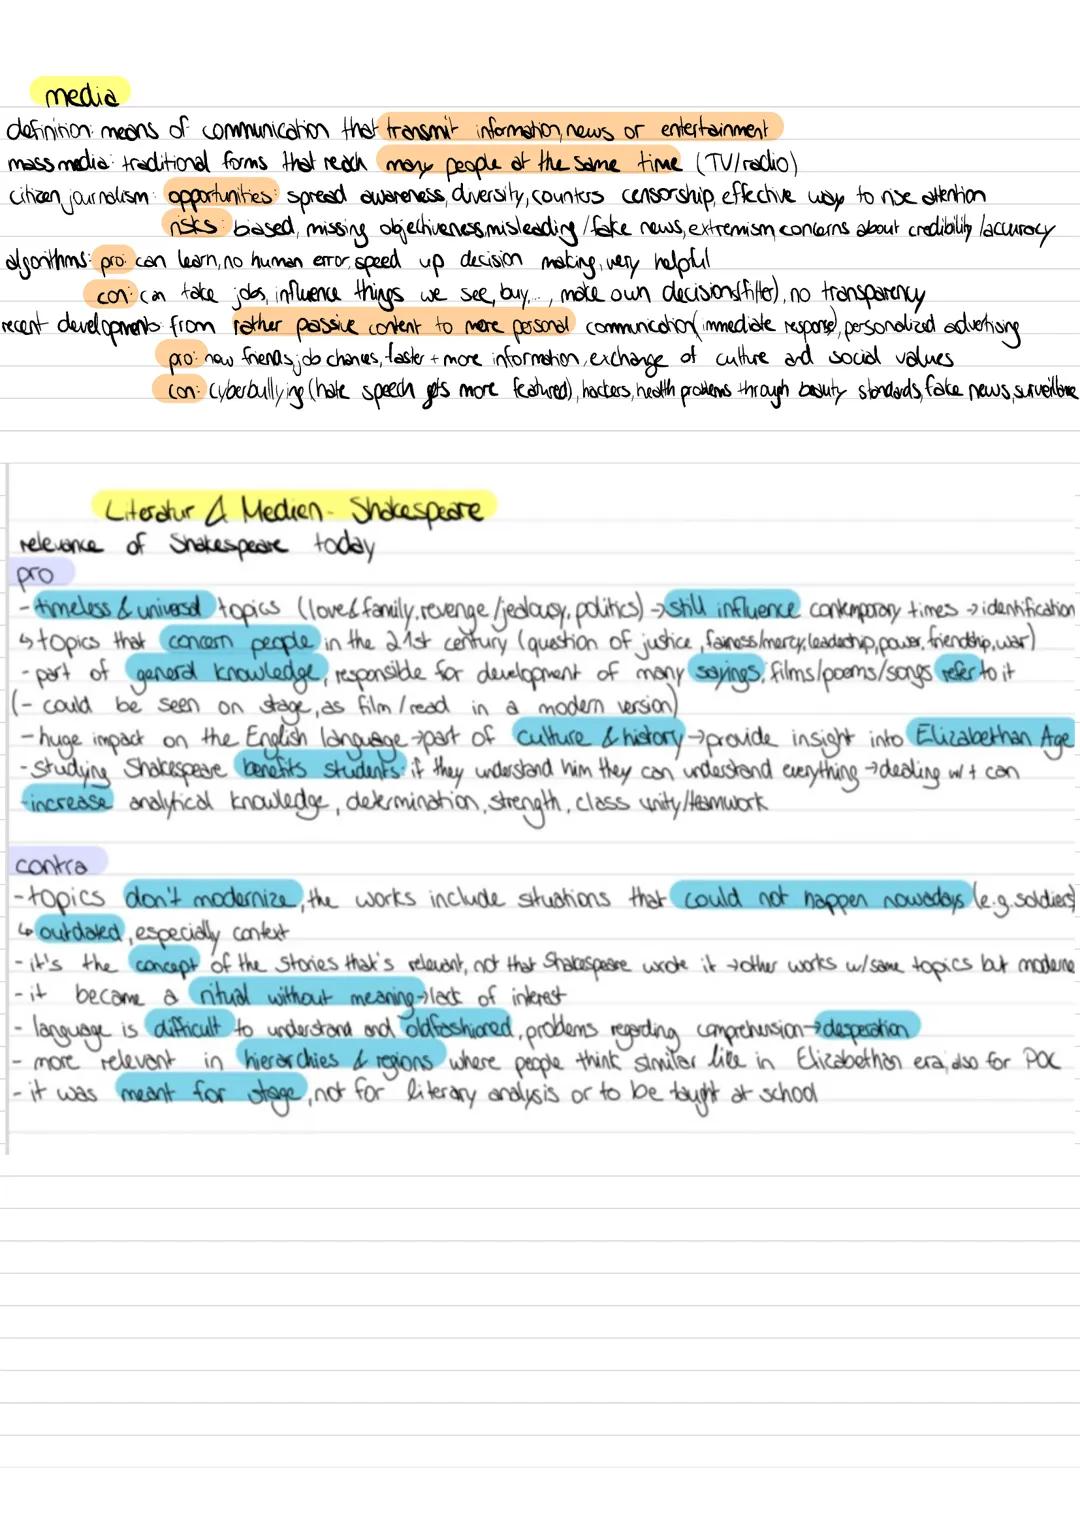 media
definition: means of communication that transmit information, news or entertainment
mass media: traditional forms that reach many people at the same time (TV/radio)
citizen journalism: opportunities: spread awareness, diversity, counters censorship, effective way to rise attention
risks: biased, missing objectiveness, misleading/fake news, extremism, concerns about credibility/accuracy
algorithms: pro: can learn, no human error, speed up decision making, very helpful
con: can take jobs, influence things we see, buy..., make own decisions (filter), no transparency
recent developments: from rather passive content to more personal communication (immediate response), personalized advertising
pro: new friends, job chances, faster + more information, exchange of culture and social values
con: cyberbullying (hate speech gets more featured), hackers, health problems through beauty standards, fake news, surveillance
Literatur & Medien - Shakespeare
relevance of Shakespeare today
pro
- timeless & universal topics (love & family, revenge/jealousy, politics) → still influence contemporary times → identification
↳ topics that concern people in the 21st century (question of justice, fairness/mercy, leadership, power, friendship, war)
- part of general knowledge, responsible for development of many sayings, films/poems/songs refer to it
(- could be seen on stage, as film/read in a modern version)
- huge impact on the English language → part of culture & history → provide insight into Elizabethan Age
- studying Shakespeare benefits students: if they understand him they can understand everything → dealing w/t can
increase analytical knowledge, determination, strength, class unity/teamwork
contra
- topics don't modernize, the works include situations that could not happen nowadays (e.g. soldiers)
↳ outdated, especially context
- it's the concept of the stories that's relevant, not that Shakespeare wrote it → other works w/same topics but moderne
- it became a ritual without meaning → lack of interest
- language is difficult to understand and oldfashioned, problems regarding comprehension → desperation
- more relevant in hierarchies & regions where people think similar like in Elizabethan era, also for POC
- it was meant for stage, not for literary analysis or to be taught at school